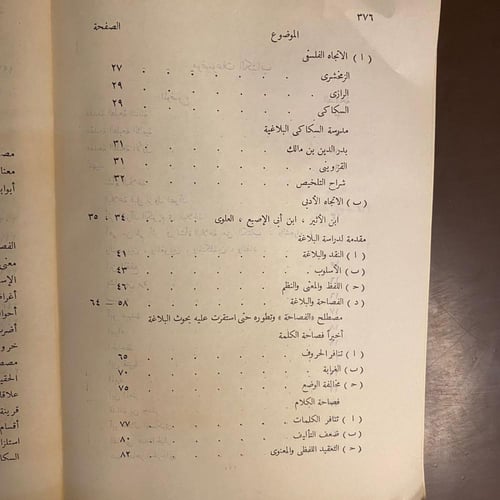 ٣٧٦
الموضوع الصفحة
( ا ) الاتجاه الفلسفى
الزمخشرى . . . . . . ٢٧
الرازى . . . . . . ٢٩
السكاكى . . . . . . ٢٩
مدرسة السكاكى البلاغية
بدر الدين بن مالك . . . . . ٣١
القزوينى . . . . . . ٣١
شراح التلخيص . . . . . ٣٢
(ب) الاتجاه الأدبى
ابن الأثير ، ابن أبى الإصبع ، العلوى ٣٤ ، ٣٥
مقدمة لدراسة البلاغة
( ا ) النقد والبلاغة . . . . . ٤١
(ب) الأسلوب . . . . . ٤٣
(ح) اللفظ والمعنى والنظم . . . . ٤٦
(د) الفصاحة والبلاغة . . . . ٥٨ – ٦٤
مصطلح «الفصاحة» وتطوره حتى استقرت عليه بحوث البلاغة
أخيراً فصاحة الكلمة
( ا ) تنافر الحروف . . . . . ٦٥
(ب) الغرابة . . . . . . ٧٠
(ح) مخالفة الوضع . . . . . ٧٥
فصاحة الكلام
( ا ) تنافر الكلمات . . . . . ٧٧
(ب) ضعف التأليف . . . . . ٨٠
(ح) التعقيد اللفظى والمعنوى . . . . ٨٢